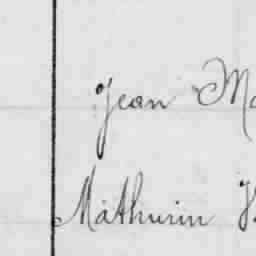 Jean
Mathurin